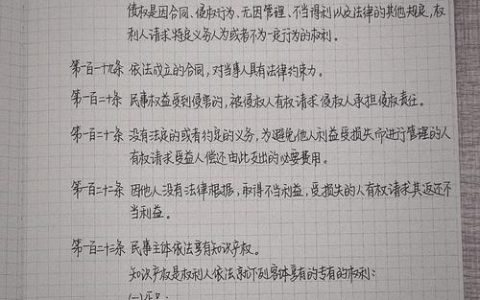 债权是因合同、侵权行为、无因管理、不当得利以及法律的其他规定,权
利人请求特定义务人为或者不为一定行为的权利。
第一百一十九条 依法成立的合同,对当事人具有法律约束力。
第一百二十条 民事权益受到侵害的,被侵权人有权请求侵权人承担侵权责任。
第一百二十一条 没有法定的或者约定的义务,为避免他人利益受损失而进行管理的人
有权请求受益人偿还由此支出的必要费用。
第一百二十二条 因他人没有法律根据,取得不当利益,受损失的人有权请求其返还不
当利益。
第一百二十三条 民事主体依法享有知识产权。
知识产权是权利人依法就下列客体享有的专有的权利:
(一)作品;